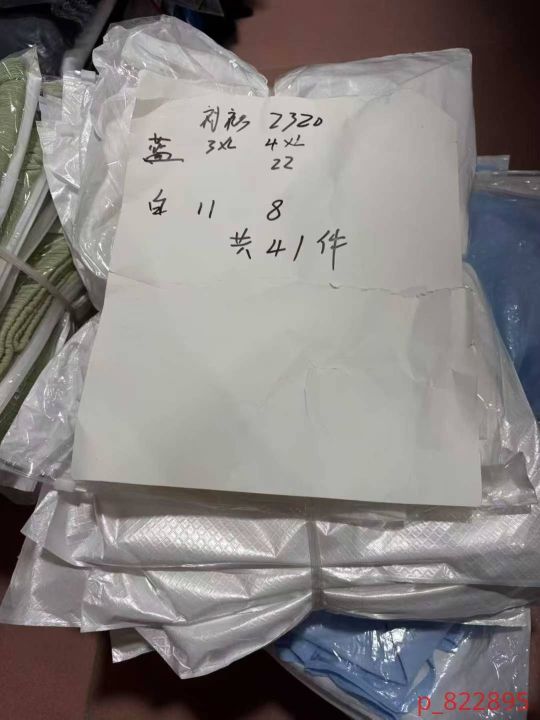 衬衫 2320
蓝 3XL 4XL
22
白 11 8
共41件
p_822895